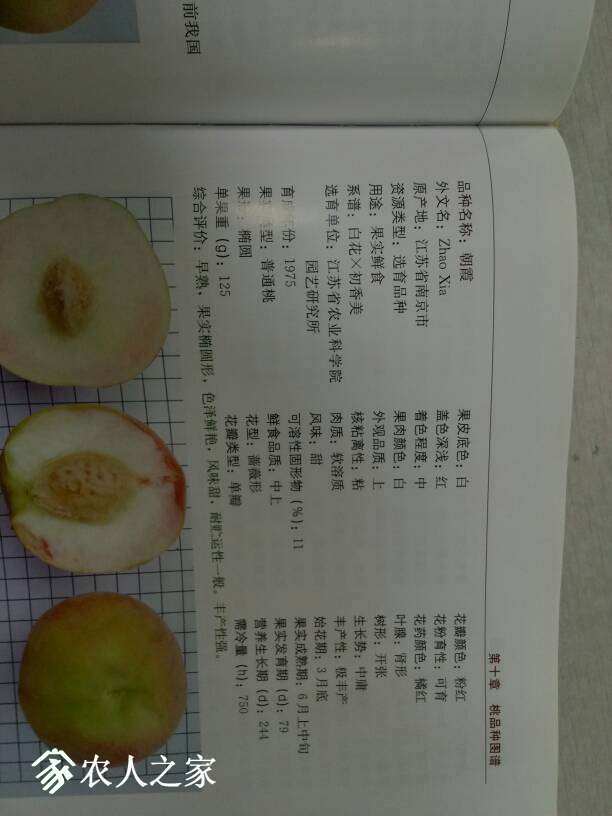 前我国
第十章 桃品种图谱
品种名称：朝霞
外文名：Zhao Xia
原产地：江苏省南京市
资源类型：选育品种
用途：果实鲜食
系谱：白花×初香美
选育单位：江苏省农业科学院
园艺研究所
育 份：1975
果 类型：普通桃
果 ：椭圆
单果重（g）：125
果皮底色：白
盖色深浅：红
着色程度：中
果肉颜色：白
外观品质：上
核粘离性：粘
肉质：软溶质
风味：甜
可溶性固形物（%）：11
鲜食品质：中上
花型：蔷薇形
花瓣类型：单瓣
花瓣颜色：粉红
花粉育性：可育
花药颜色：橘红
叶腺：肾形
树形：开张
生长势：中庸
丰产性：极丰产
始花期：3月底
果实成熟期：6月上中旬
果实发育期（d）：79
营养生长期（d）：244
需冷量（h）：750
综合评价：早熟，果实椭圆形，色泽鲜艳，风味甜，耐贮运性一般。丰产性强。
农人之家